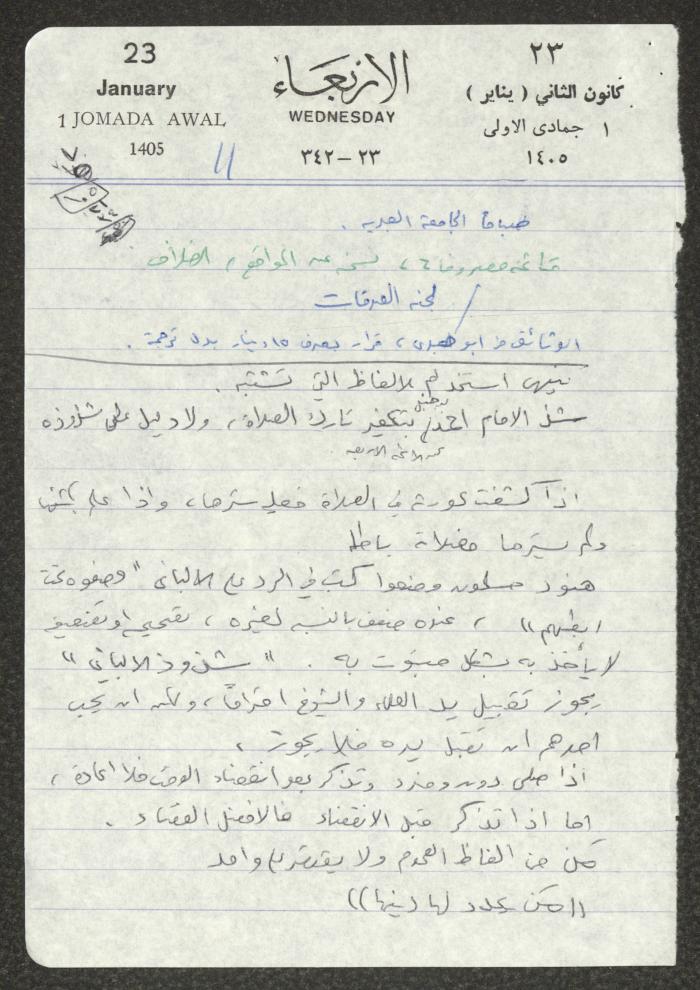 23
January
1 JOMADA AWAL
1405
الأربعاء
WEDNESDAY
٢٣-٣٤٢
٢٣
كانون الثاني ( يناير )
١ جمادى الاولى
١٤٠٥
صباحاً الجامعة العبرية .
قائمة مصروفات ، نسخة عن الواقع ،
لجنة الصدقات
الوثائق من ابو ، قرار بصرف ١٥ دينار بدل ترجمة .
استخدام الالفاظ التي تشتبه .
شذ الامام احمد بن حنبل بتكفير تارك الصلاة ، ولا دليل على شذوذه
عن الائمة الاربعه
اذا كشفت عورته في الصلاة فعليه سترها ، واذا علم بكشفها
ولم يسترها فصلاته باطلة
هنود مسلمون وضعوا كتب في الرد على الالباني " وضعوه تحت
ابطهم " ، عنده ضعف بالنسبة لغيره ، تصحيح او تضعيف
لا يأخذ به بشكل مبتوت به . " شذوذ الالباني "
يجوز تقبيل يد العلماء والشيوخ احتراماً ، ولكن ان يحب
احدهم ان تقبل يده فلا يجوز ،
اذا صلى دون وضوء وتذكر بعد انقضاء الوقت فلا اعادة ،
اما اذا تذكر قبل الانقضاء فالافضل القضاء .
من من الفاظ العموم ولا يقتصر على واحد
((من يجدد لها دينها))